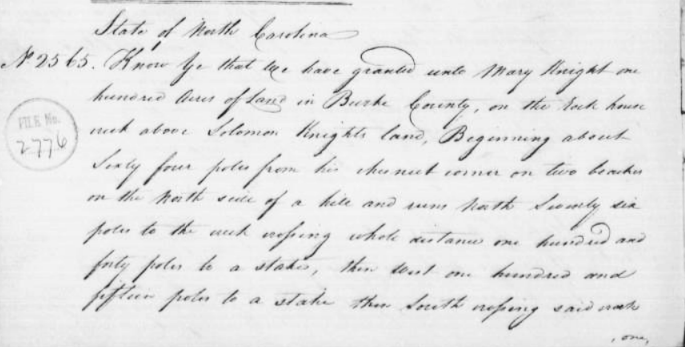 State of North Carolina
No 2565. Know Ye that we have granted unto Mary Knight one
hundred Acres of Land in Burke County, on the Rock house
creek above Solomon Knights land, Beginning about
Sixty four poles from his chesnut corner on two beaches
on the North side of a hill and runs North Seventy six
poles to the creek crossing whole distance one hundred and
forty poles to a stake, then West one hundred and
fifteen poles to a stake then South crossing said creek
one,
FILE No.
2776